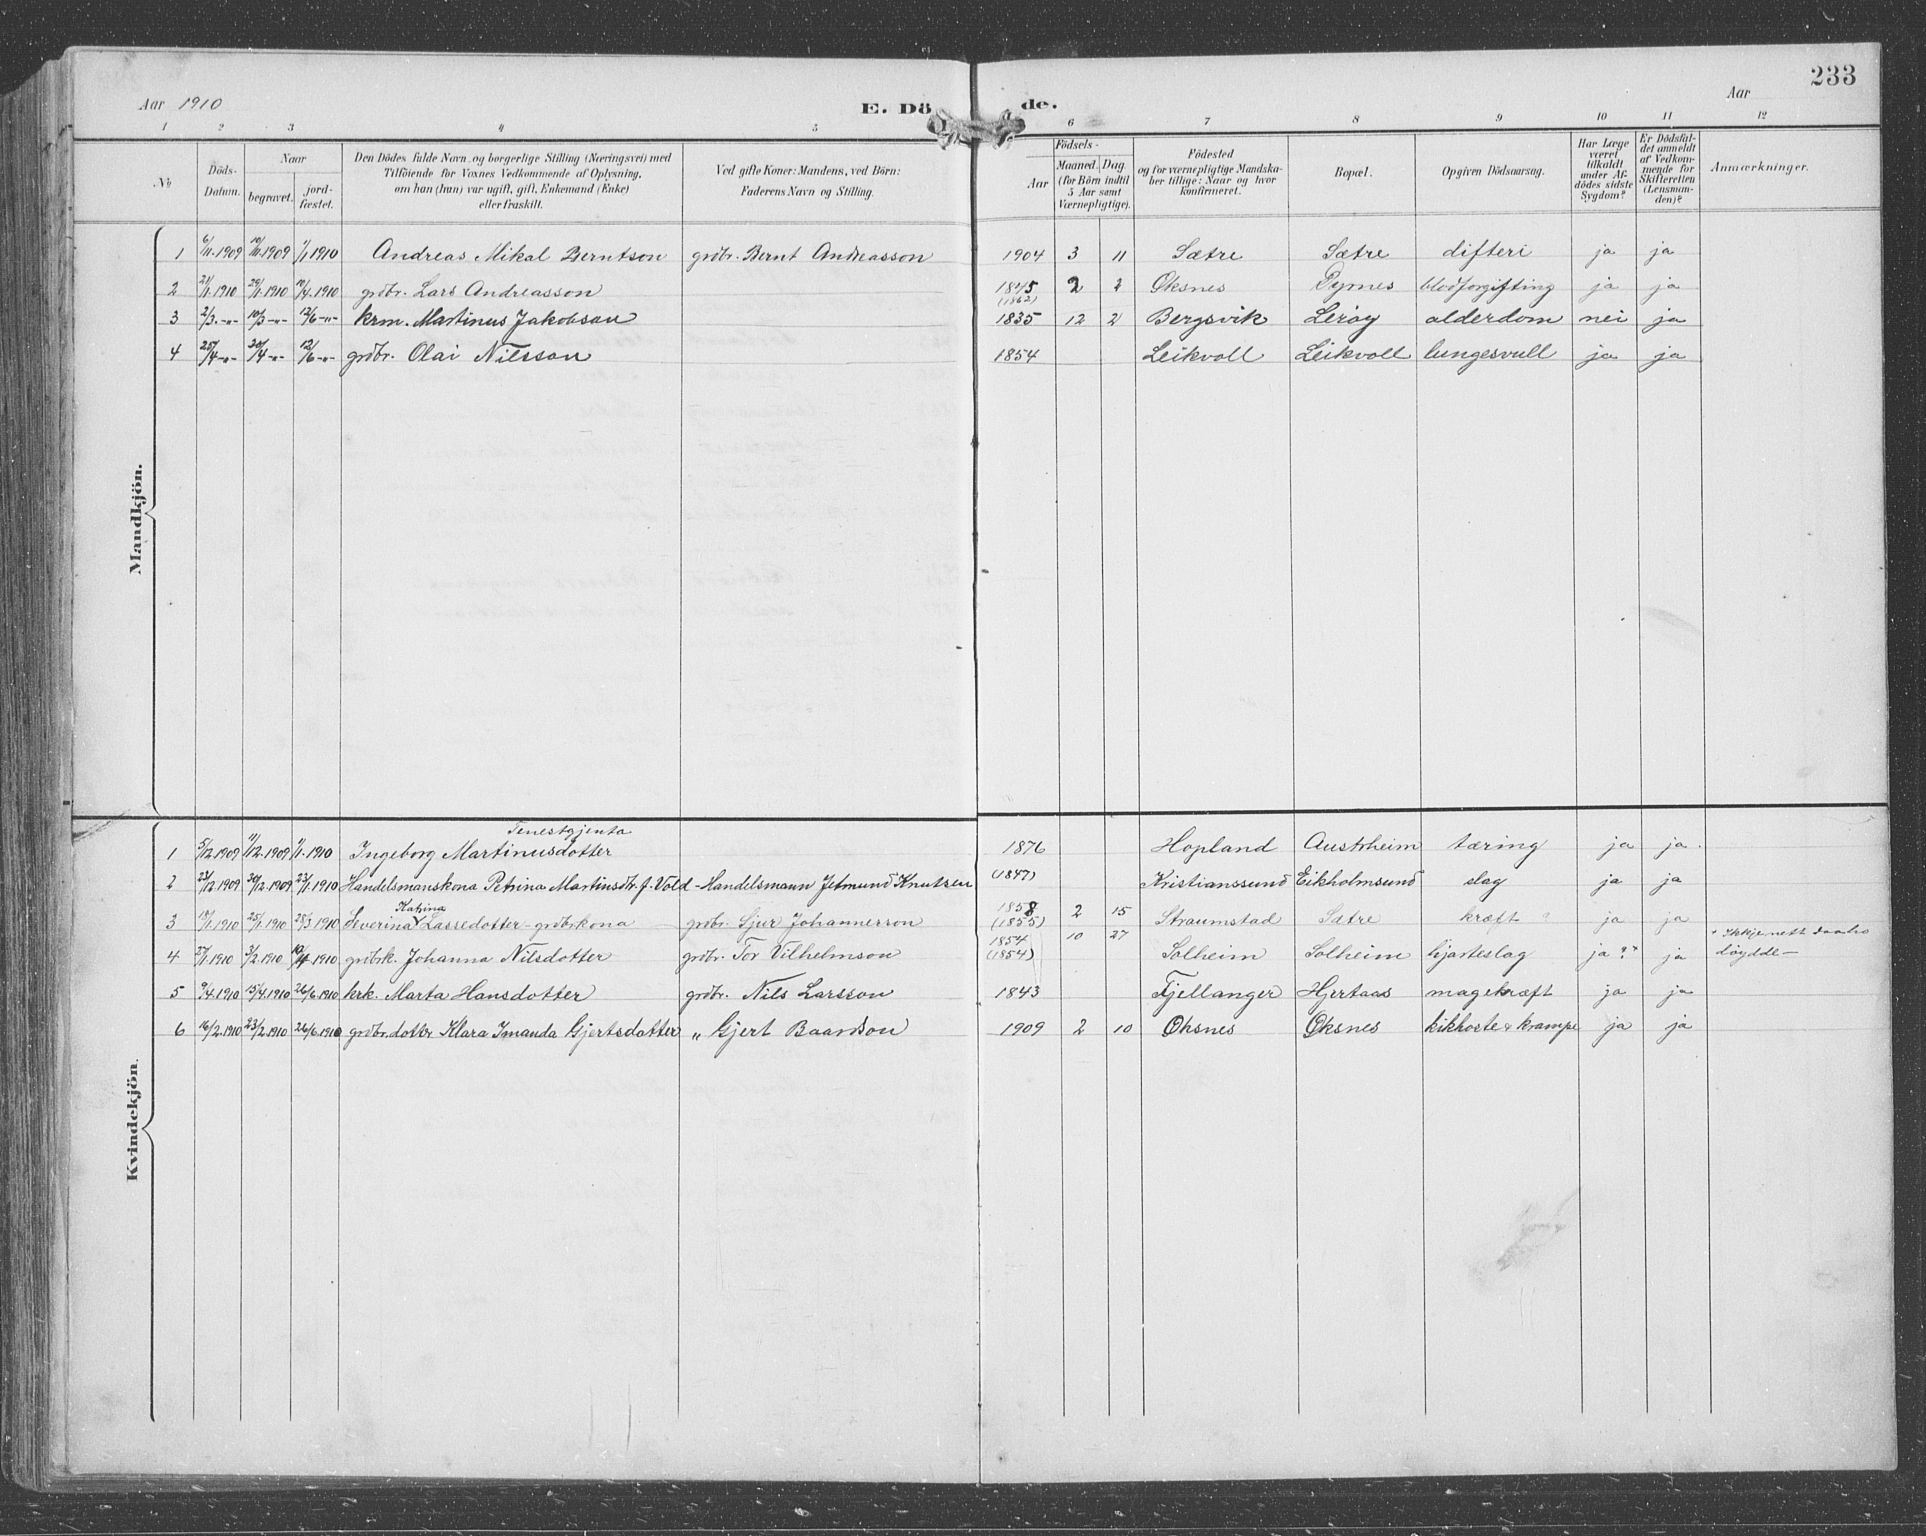 233
Aar 1910 E. Dö de. Aar
1 2 3 4 5 6 7 8 9 10 11 12
No Döds-Datum. Naar begravet. jord-fæstet. Den Dödes fulde Navn og borgerlige Stilling (Næringsvei) med Tilföiende for Voxnes Vedkommende af Oplysning, om han (hun) var ugift, gift, Enkemand (Enke) eller fraskilt. Ved gifte Koner: Mandens, ved Börn: Faderens Navn og Stilling. Födsels- Aar Maaned. Dag. (for Börn indtil 5 Aar samt Værnepligtige). Födested og for værnepligtige Mandskaber tillige: Naar og hvor konfirmeret. Bopæl. Opgiven Dödsaarsag. Har Læge været tilkaldt under Afdödes sidste Sygdom? Er Dödsfaldet anmeldt af Vedkommende for Skifteretten (Lensmanden)? Anmærkninger.
Mandkjön.
1 6/11.1909 10/11.1909 1/1 1910 Andreas Mikal Berntson grdbr. Bernt Andreasson 1904 3 11 Sætre Sætre difteri ja ja
2 21/1.1910 29/1.1910 10/4.1910 grdbr. Lars Andreasson 1845 (1862) 2 2 Oksnes Dyrnes blodforgifting ja ja
3 2/3.-"- 10/3-"- 12/6-"- krm. Martinus Jakobson 1835 12 2 Bergsvik Leröy alderdom nei ja
4 25/4-"- 20/4-"- 12/6-"- grdbr. Olai Nilsson 1854 Leikvoll Leikvoll lungesvull ja ja
Kvindekjön.
Tenestgjenta
1 5/12.1909 11/12.1909 1/1.1910 Ingeborg Martinusdotter 1876 Hopland Austrheim tæring ja ja.
2 23/12.1909 30/12.1909 23/1.1910 Handelsmanskona Petrina Martinsdtr. f. Vold - Handelsmann Jetmund Knutsen (1847) Kristianssund Eikholmsund slag ja ja
Katrina
3 18/1.1910 25/1.1910 28/3 1910 Severina Lassedotter - grdbrkona grdbr. Sjur Johannesson 1858 (1855) 2 15 Straumstad Sætre kræft ? ja ja
4 27/1.1910 3/2.1910 10/4 1910 grdbrk. Johanna Nilsdotter grdbr. Tor Vilhelmson 1854 (1854) 10 27 Solheim Solheim hjarteslag ja ?+ ja + Ikkje nett daa ho döydde-
5 9/4.1910 15/4.1910 26/6.1910 krk. Marta Hansdotter grdbr. Nils Larsson 1843 Fjellanger Hjertaas magekræft ja ja
6 16/2.1910 23/2.1910 26/6.1910 grdbr.dotter Klara Imanda Gjertsdotter „ Gjert Baardson 1909 2 10 Oksnes Oksnes kikhoste & krampe ja ja